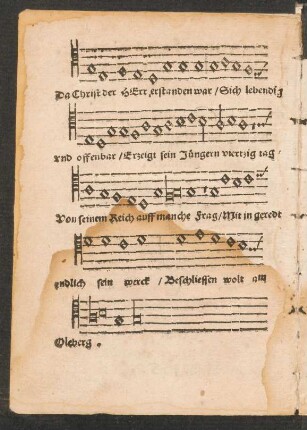 Da Christ der HErr erstanden war / Sich lebendig
vnd offenbar / Erzeigt sein Jüngern viertzig tag /
Von seinem Reich auff manche Frag / Mit in geredt
endlich sein werck / Beschliessen wolt am
Oleberg .